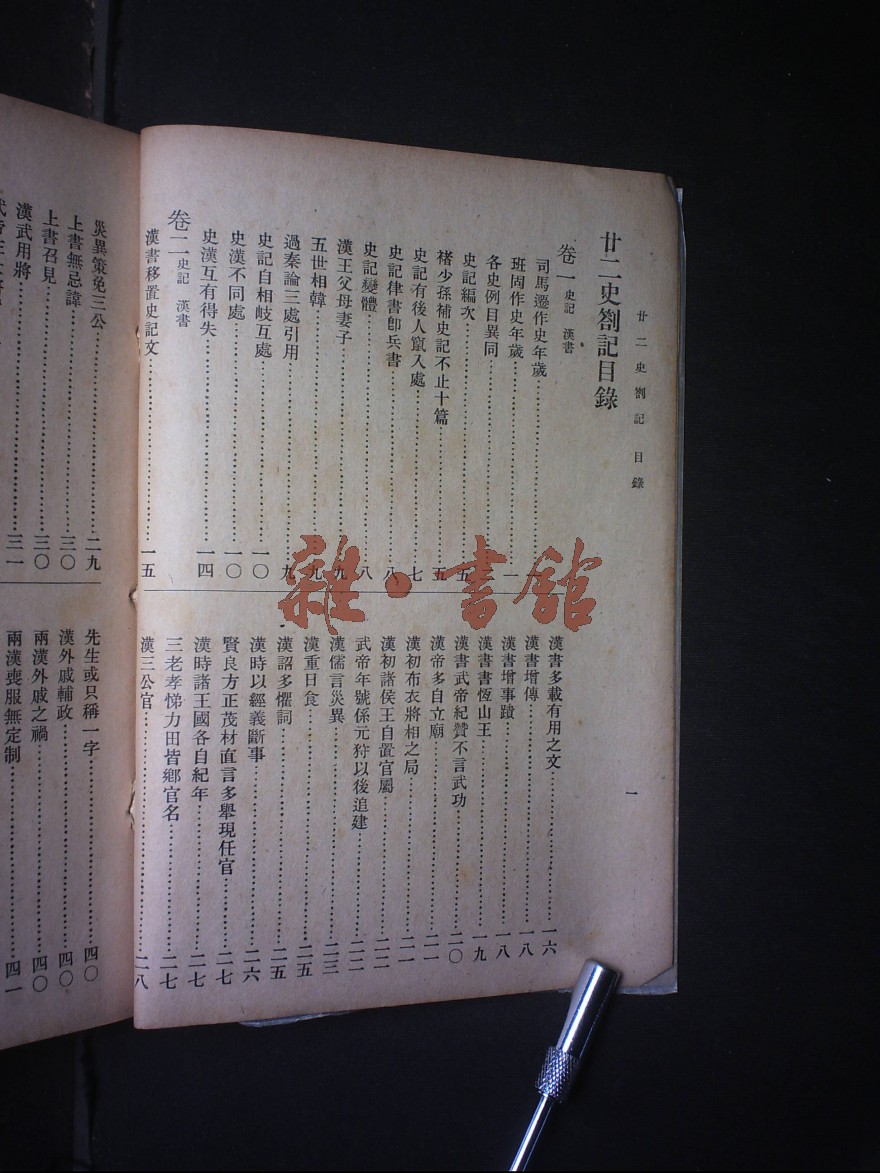 廿二史劄記目錄
廿二史劄記目錄
卷一 史記 漢書
司馬遷作史年歲
班固作史年歲……一
各史例目異同
史記編次……五
褚少孫補史記不止十篇……五
史記有後人竄入處……七
史記律書卽兵書……八
史記變體……八
漢王父母妻子……九
五世相韓……九
過秦論三處引用……九
史記自相岐互處……一〇
史漢不同處……一〇
史漢互有得失……一四
卷二 史記 漢書
漢書移置史記文……一五
漢書多載有用之文……一六
漢書增傳……一八
漢書增事蹟……一八
漢書書恆山王……一九
漢書武帝紀贊不言武功……二〇
漢帝多自立廟……二一
漢初布衣將相之局……二一
漢初諸侯王自置官屬……二二
武帝年號係元狩以後追建……二二
漢儒言災異……二三
漢重日食……二五
漢詔多懼詞……二五
漢時以經義斷事……二六
賢良方正茂材直言多舉現任官……二七
漢時諸王國各自紀年……二七
三老孝悌力田皆鄉官名……二七
漢三公官……二八
一
災異策免三公……二九
上書無忌諱……三〇
上書召見……三〇
漢武用將……三一
先生或只稱一字……四〇
漢外戚輔政……四〇
兩漢外戚之禍……四〇
兩漢喪服無定制……四一
雜·書館